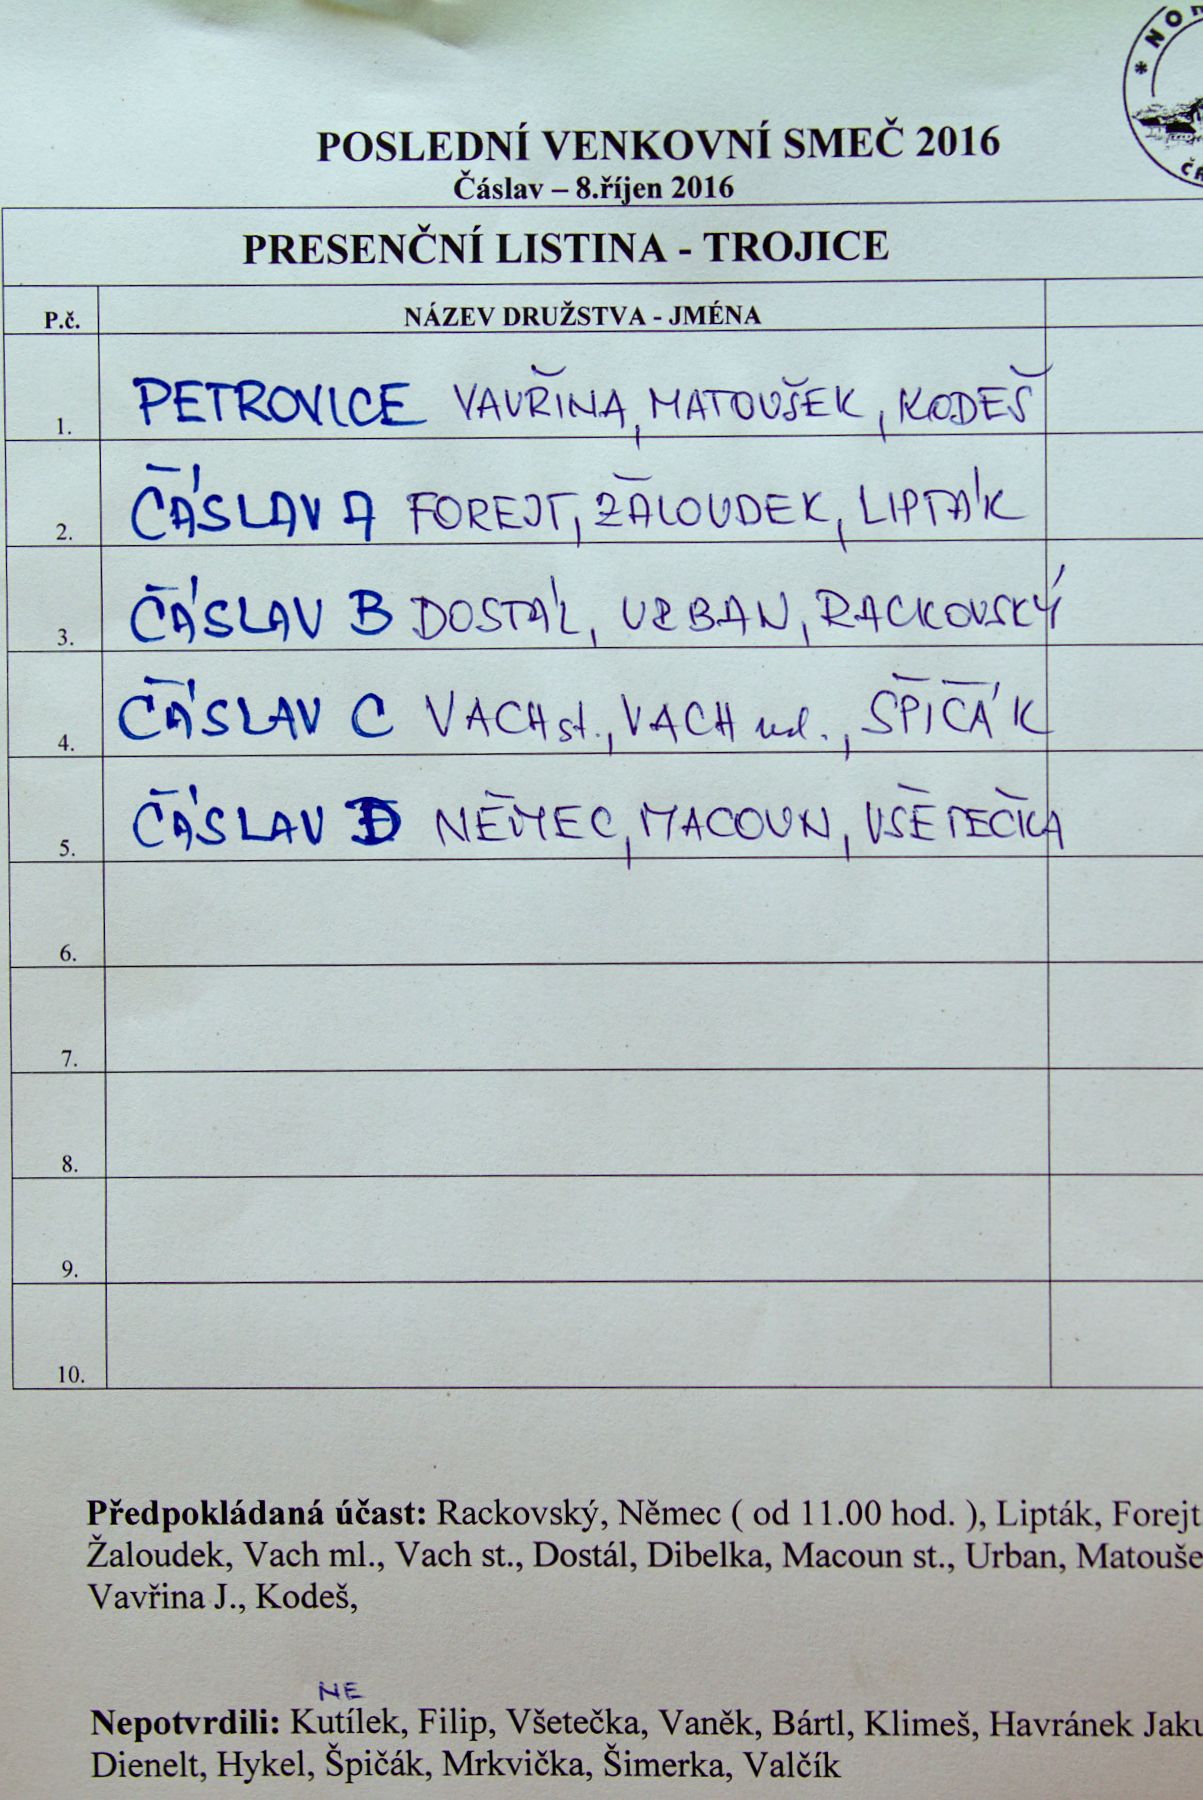 * NO
ČR
POSLEDNÍ VENKOVNÍ SMEČ 2016
Čáslav – 8.říjen 2016
PRESENČNÍ LISTINA - TROJICE
P.č. NÁZEV DRUŽSTVA - JMÉNA
1. PETROVICE VAVŘINA, MATOUŠEK, KODEŠ
2. ČÁSLAV A FOREJT, ŽALOUDEK, LIPTÁK
3. ČÁSLAV B DOSTÁL, URBAN, RACKOVSKÝ
4. ČÁSLAV C VACH st., VACH ml., ŠPIČÁK
5. ČÁSLAV D NĚMEC, MACOUN, VŠETEČKA
6.
7.
8.
9.
10.
Předpokládaná účast: Rackovský, Němec ( od 11.00 hod. ), Lipták, Forejt
Žaloudek, Vach ml., Vach st., Dostál, Dibelka, Macoun st., Urban, Matouše
Vavřina J., Kodeš,
NE
Nepotvrdili: Kutílek, Filip, Všetečka, Vaněk, Bártl, Klimeš, Havránek Jaku
Dienelt, Hykel, Špičák, Mrkvička, Šimerka, Valčík